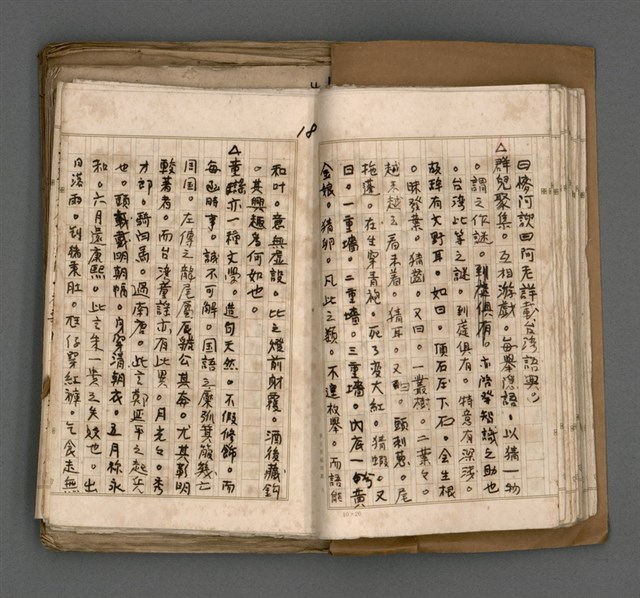 曰僚阿歆曰阿老詳載台湾語典
△群兒聚集。互相游戲。每舉隱語。以猜一物
。謂之作謎。到處俱有。亦啓發智識之助也
。台湾比等之謎。到處俱有。特意有深淺。
故語有文野耳。如曰。頂石压下石。会生根
。昧發葉。猜齒。又曰。一叢樹。二葉々。
越來越去看未着。猜耳。又曰。頭刺葱。尾
拖蓬。在生穿青袍。死了変大紅。猜蝦。又
曰。一重墻。二重墻。三重墻。內底一个黃
金娘。猜卵。凡此之類。不遑枚舉。而語能
18
和叶。意無虛設。比之燈前射覆。酒後藏鈎
。其興趣為何如也。
△童謠亦一種文學。造句天然。不假修飾。而
每函時事。誠不可解。国語之檿弧箕服幾亡
周国。左傳之龍尾鶉賁公其奔。尤其彰明
較著者。而台湾童謠亦有此異。月光々。秀
才郎。騎白馬。過南唐。此言鄭延平之起兵
也。頭戴戴明朝帽。身穿清朝衣。五月称永
和。六月還康熙。此言朱一貴之失敗也。出
日落雨。刣猪秉肚。尪仔穿紅褲。乞食走無